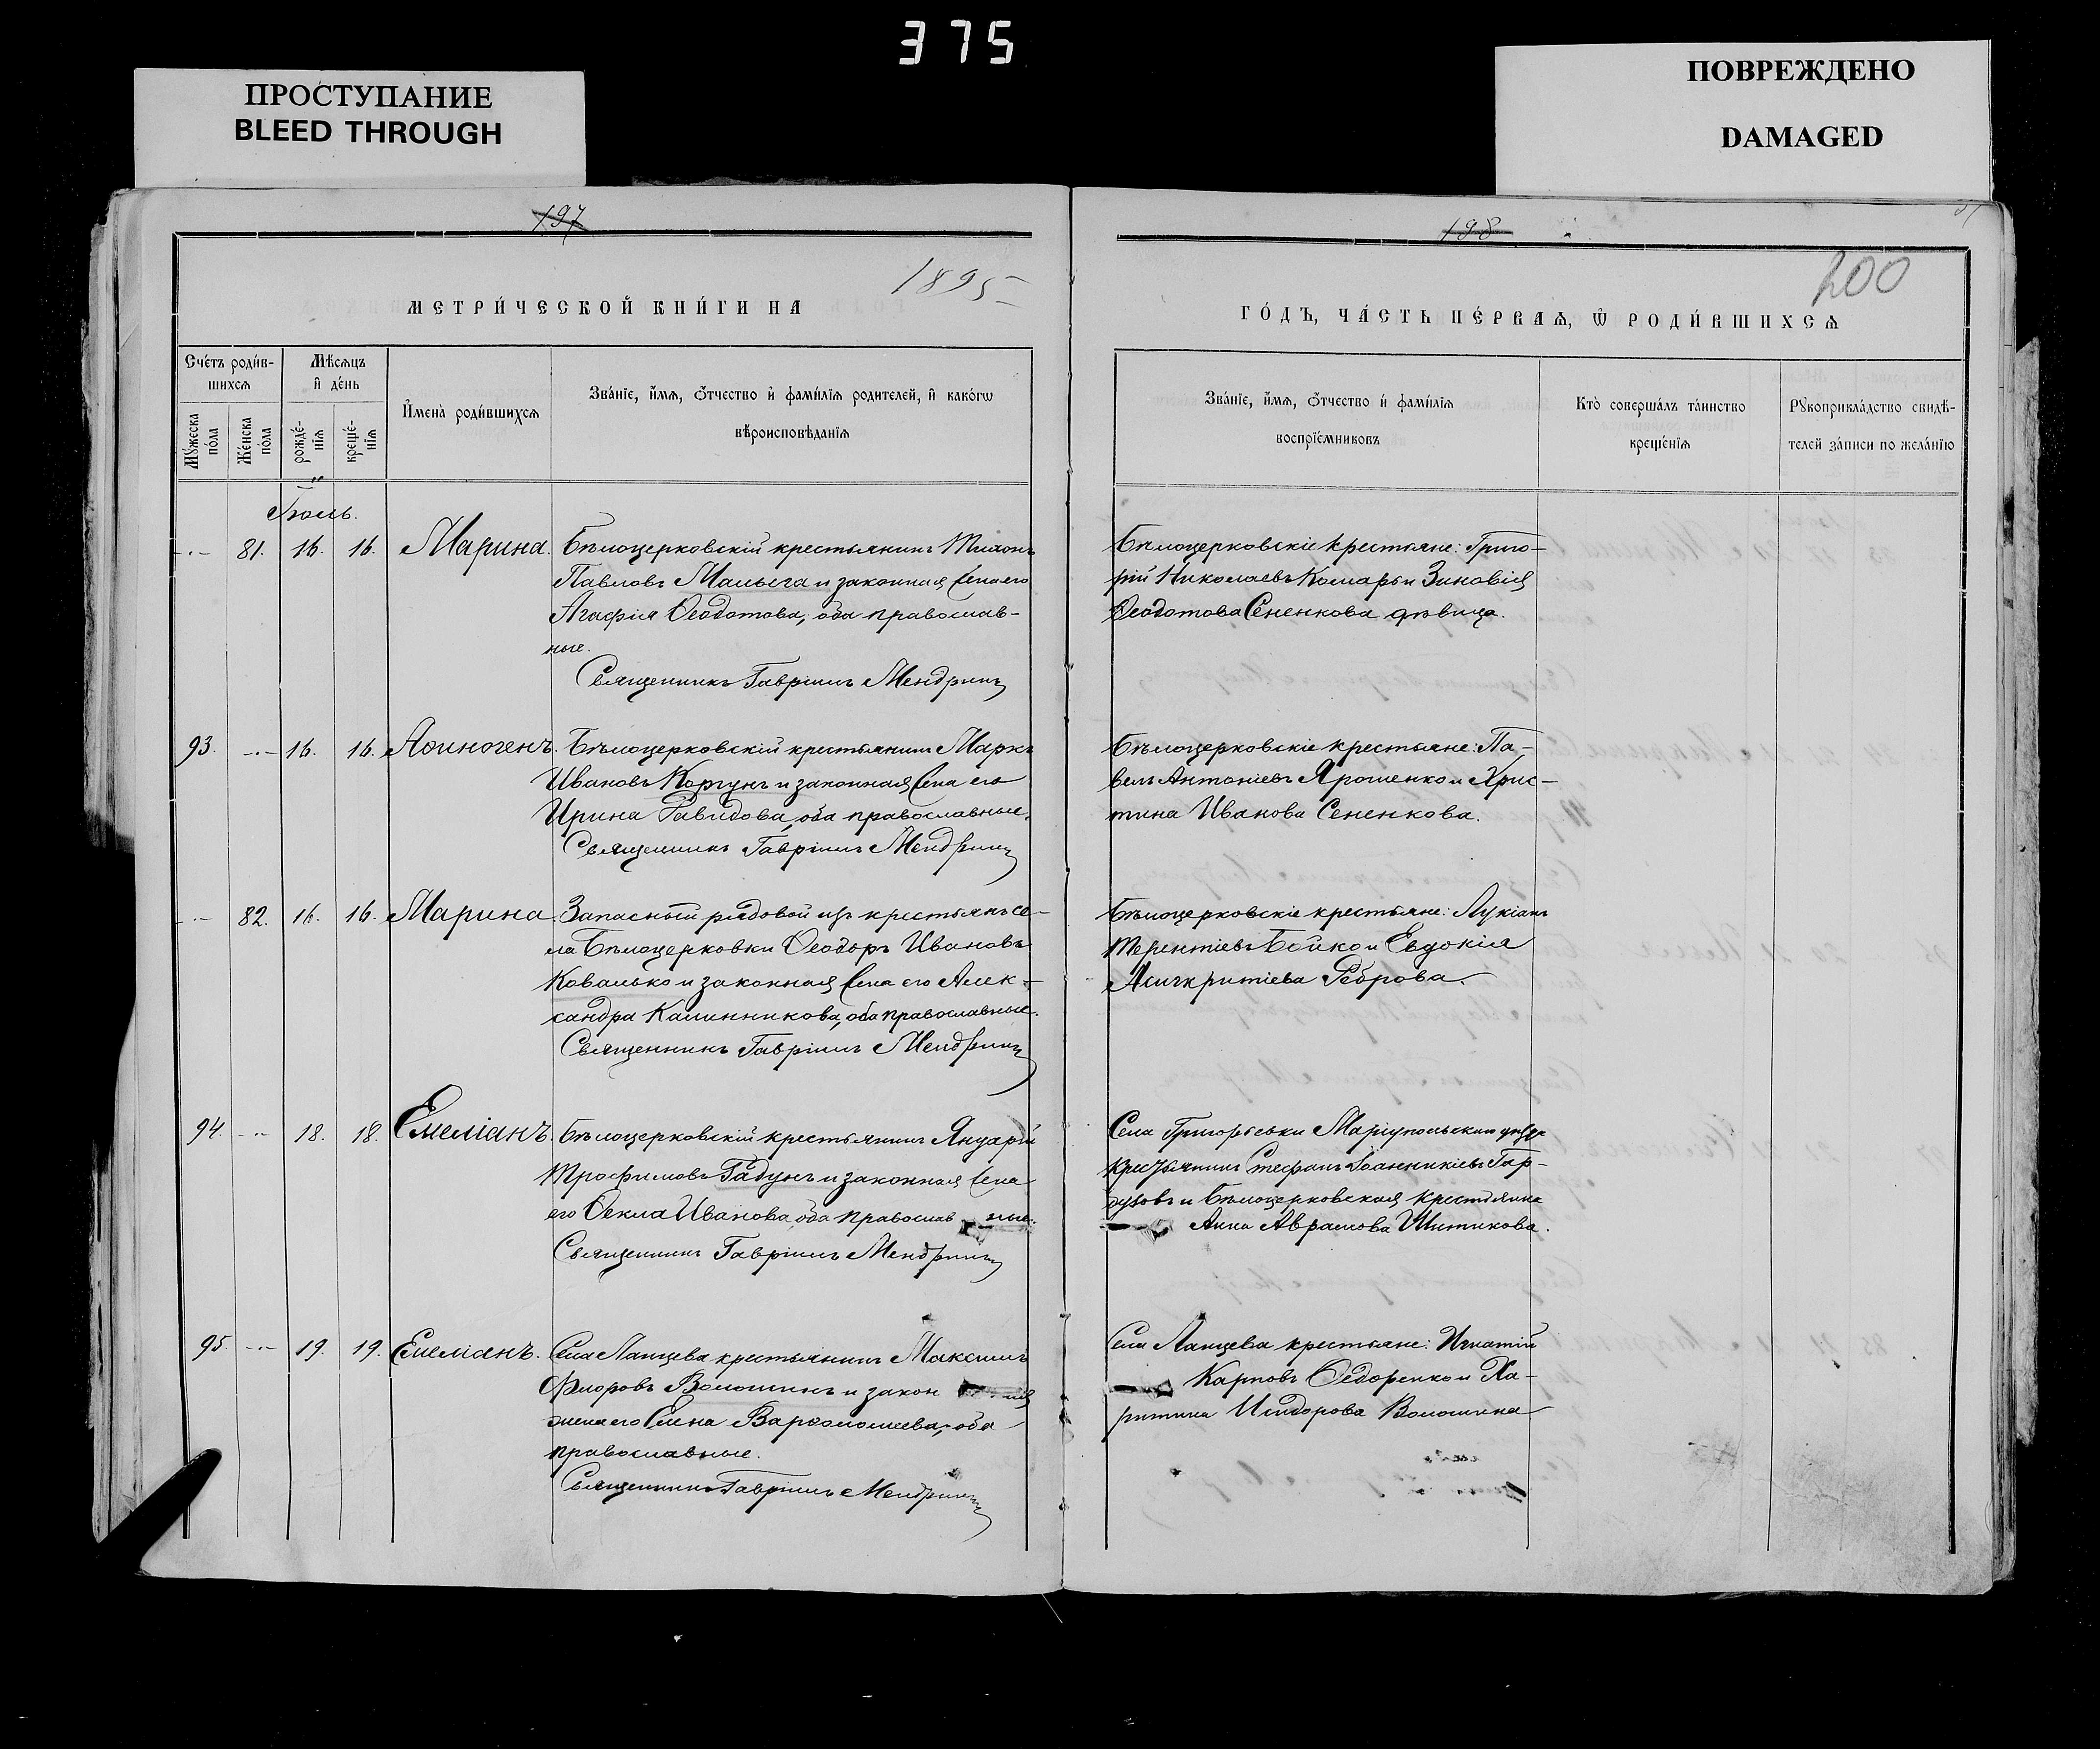 375
ПРОСТУПАНИЕ
BLEED THROUGH
ПОВРЕЖДЕНО
DAMAGED
197
1895
МЕТРИ́ЧЕСКОЙ КНИ́ГИ НА
Сче́тъ роди́в-
шихсѧ
Мѣсѧцъ
и҆ де́нь
Мꙋ́жеска по́ла
Же́нска по́ла
рожде́-нїѧ
креще́-нїѧ
И҆мена̀ роди́вшихсѧ
Зва́нїе, и҆́мѧ, ѻ҆́тчество и҆ фами́лїѧ родителей, и҆ како́гѡ
вѣроисповѣ́данїѧ
Іюль.
-·- 81. 16. 16. Марина. Бѣлоцерковскій крестьянинъ Тихонъ
Павловъ Малыга и законная жена его
Агафія Ѳеодотова, оба православ-
ные.
Священникъ Гавріилъ Мендринъ
93. -·- 16. 16. Аѳиногенъ. Бѣлоцерковскій крестьянинъ Маркъ
Ивановъ Коргунъ и законная жена его
Ирина Давидова, оба православные.
Священникъ Гавріилъ Мендринъ
-·- 82. 16. 16. Марина. Запасный рядовой изъ крестьянъ се-
ла Бѣлоцерковки Ѳеодоръ Ивановъ
Ковалько и законная жена его Алек-
сандра Калинникова, оба православные.
Священникъ Гавріилъ Мендринъ
94. -·- 18. 18. Емеліанъ. Бѣлоцерковскій крестьянинъ Януарій
Трофимовъ Гадунъ и законная жена
его Ѳекла Иванова, оба православные.
Священникъ Гавріилъ Мендринъ
95. -·- 19. 19. Емеліанъ. Села Ланцева крестьянинъ Максимъ
Флоровъ Волошинъ и законная
жена его Елена Варѳоломеева, оба
православные.
Священникъ Гавріилъ Мендринъ
198
200
ГО́ДЪ, ЧА́СТЬ ПЕ́РВАѦ, Ѽ РОДИ́ВШИХСѦ
Зва́нїе, и҆́мѧ, ѻ҆́тчество и҆ фами́лїѧ
воспрїе́мниковъ
Кто̀ соверша́лъ та́инство
креще́нїѧ
Рꙋкоприкла́дство свидѣ́-
телей за́писи по жела́нїю
Бѣлоцерковскіе крестьяне: Григо-
рій Николаевъ Комаръ и Зиновія
Ѳеодотова Сененкова дѣвица.
Бѣлоцерковскіе крестьяне: Па-
велъ Антоніевъ Ярошенко и Хрис-
тина Иванова Сененкова.
Бѣлоцерковскіе крестьяне: Лукіанъ
Терентіевъ Бойко и Евдокія
Асигкритіева Реброва.
Села Григорьевки Маріупольскаго уѣзда
крестьянинъ Стефанъ Іоанникіевъ Гар-
бузовъ и Бѣлоцерковская крестьянка
Анна Аврамова Шитикова.
Села Ланцева крестьяне: Игнатій
Карповъ Ѳедоренко и Ха-
ритина Исидорова Волошина